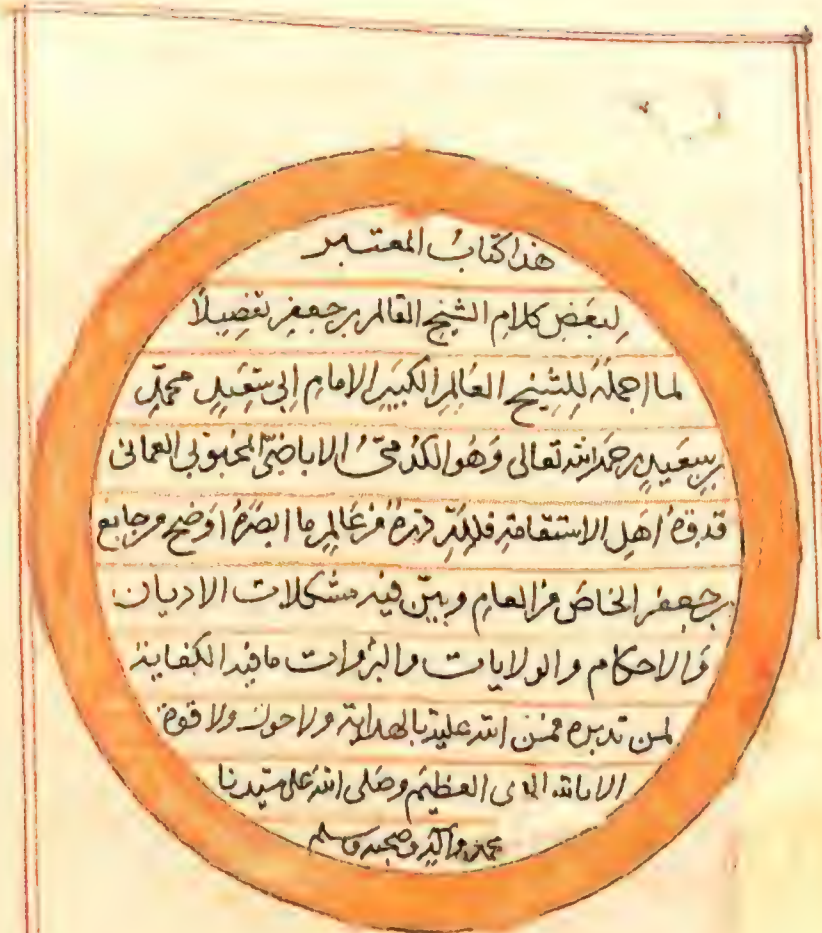 هذا كتابُ المعتبر
لبعَضِ كلامِ الشيخِ العالم بن جعفر تفصِيلًا
لما اجملَهُ لِلشيخ العَالِمِ الكبيَرِ الامامِ ابى سَعِيدٍ محمّدِ
بن سعَيدٍ رحمه الله تعالى وَهُو الكُدمىُّ الاباضِيّ المحبوبى العمانى
قدوةُ اهَلِ الاستقامة فللّه درهُ مِن عَالِم ما ابصَرَهُ اوَضح من جامِع
بن جعفر الخاصَ مِن العامِ وبيّن فيه مشكلات الاديان
وَالاحكام والولايات والبراوات ما فيه الكفاية
لمن تدبره فمن الله عليه بالهداية ولا حول ولا قوة
الا بالله العلى العظيم وصَلى الله على سيدنا
محمد وآله وصحبه وسلم